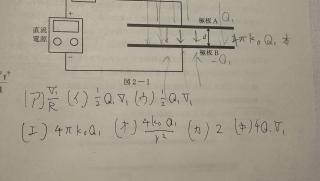 直流
電源
極板A
Q₁
d
4πk₀Q₁ 本
極板B
-Q₁
図2-1
(ア) V₁/R (イ) 1/2 Q₁V₁ (ウ) 1/2 Q₁V₁
(エ) 4πk₀Q₁ (オ) 4k₀Q₁/r² (カ) 2 (キ) 4Q₁V₁